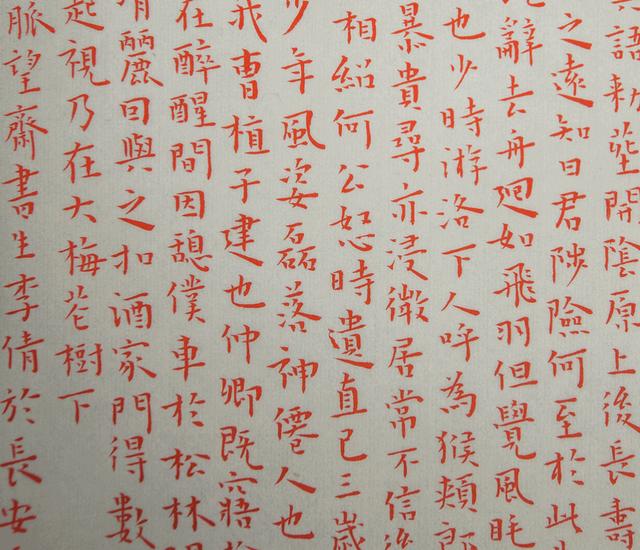 語開陰原上後長壽
之遠知曰君陟險何至於此
辭去舟迴如飛羽但覺風眊
也少時游洛下人呼為猴頰郎
貴尋亦浸微居常不信後
相紹何公恕時遺直已三歲
少年風姿磊落神僊人也
我曹植子建也仲卿既寤
在醉醒間因憩僕車於松林間
有麗回與之扣酒家門得數
起視乃在大梅花樹下
脈望齋書生李倩於長安